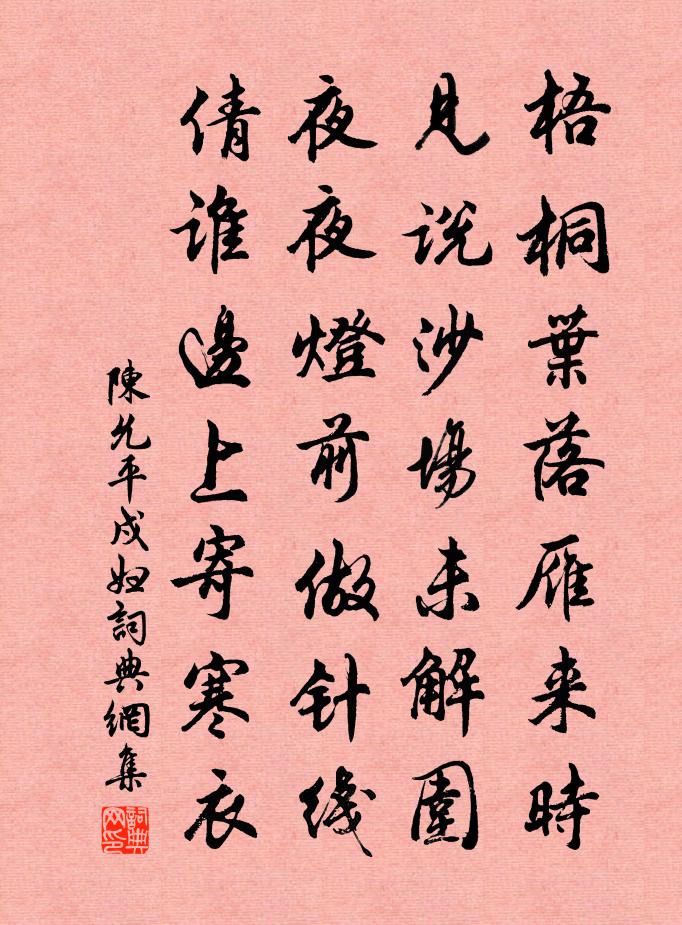 梧桐葉落雁来時
見説沙場未解圍
夜夜燈前做针綫
倩誰邊上寄寒衣
陳允平戍婦詞典網集
詞典網印